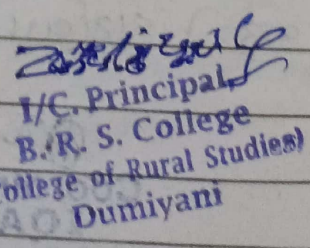 I/C. Principal
B. R. S. College
ollege of Rural Studies)
Dumiyani